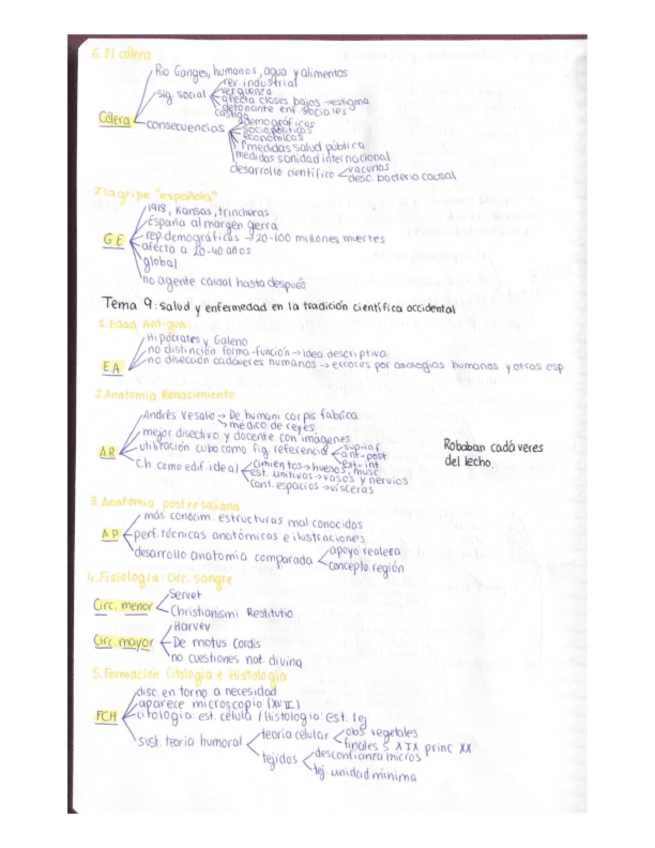 6. El cólera
Rio Ganges, humanos, agua y alimentos
rev. industrial
sig. social vergüenza
afecta clases bajas → estigma
detonante enf. sociales
castigo
Cólera
consecuencias demográficas
sociopolíticas
económicas
↑medidas salud pública
medidas sanidad internacional
desarrollo científico vacunas
desc. bacteria causal
7. La gripe "española"
1918, Kansas, trincheras
España al margen gerra
GE rep. demográficas → 20-100 millones muertes
afecta a 20-40 años
global
no agente causal hasta después
Tema 9: salud y enfermedad en la tradición científica occidental
1. Edad Antigua
Hipócrates y Galeno
no distinción forma-función → idea descriptiva
EA no disección cadáveres humanos → errores por analogías humanos y otras esp.
2. Anatomia Renacimiento
Andrés Vesalio → De humani corpis fabrica
→ médico de reyes
mejor disectivo y docente con imágenes
AR utilización cubo como fig. referencia sup-inf
ant-post
ext-int
c.h como edif. ideal cimientos → huesos, musc
est. unitivas → vasos y nervios
cont. espacios → vísceras
Robaban cadáveres
del lecho.
3. Anatomía postvesaliana
más conocim. estructuras mal conocidas
AP perf. técnicas anatómicas e ilustraciones
desarrollo anatomía comparada apoyo realeza
concepto región
4. Fisiología: circ. sangre
Circ. menor Servet
Christianismi Restitutio
Harvey
Circ. mayor De motus Cordis
no cuestiones nat. divina
5. Formación Citologia e Histologia
disc. en torno a necesidad
aparece microscopio (XVII)
FCH citología: est. célula / Histologia: est. tej
sust. teoría humoral teoría celular obs vegetales
finales s XIX princ XX
tejidos desconfianza micros
tej. unidad mínima